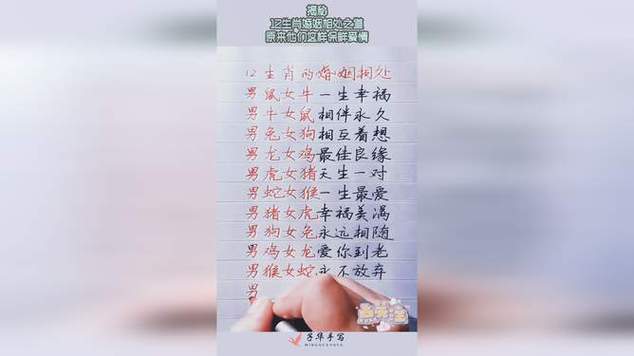 揭秘
12生肖婚姻相处之道
原来他们这样保鲜爱情
12生肖的婚姻相处
男鼠女牛一生幸福
男牛女鼠相伴永久
男兔女狗相互着想
男龙女鸡最佳良缘
男虎女猪天生一对
男蛇女猴一生最爱
男猪女虎幸福美满
男狗女兔永远相随
男鸡女龙爱你到老
男猴女蛇永不放弃
男